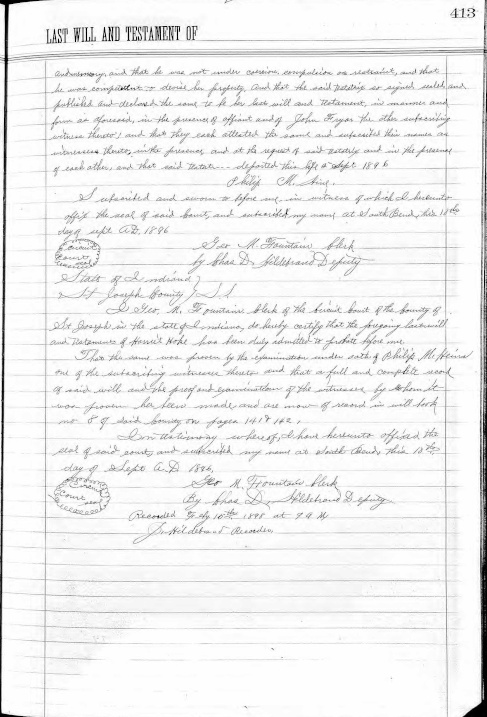 413
LAST WILL AND TESTAMENT OF
and memory, and that he was not under coercion, compulsion or restraint, and that
he was competent to devise her property, And that the said testatrix so signed sealed and
published and declared the same to be her last will and testament, in manner and
form as aforesaid, in the presence of affiant and of John the other subscribing
witness thereto; and that they each attested the same and subscribed their names as
witnesses thereto, in the presence, and at the request of said testatrix and in the presence
of each other, and that said testat--- departed this life Sept 1896
Philip M.
Subscribed and sworn to before me, in witness of which I hereunto
affix the seal of said Court, and subscribed my name at South Bend, this
day of Sept A.D. 1896
Circuit
Court
seal
Geo M. Fountain Clerk
by Chas D. Hildebrand Deputy
State of Indiana }
St Joseph County } S.S.
I Geo. M. Fountain, Clerk of the Circuit Court of the County of
St Joseph in the state of Indiana, do hereby certify that the foregoing last will
and testament of has been duly admitted to probate before me.
That the same was proven by the examination under oath of Philip M.
one of the subscribing witnesses thereto and that a full and complete record
of said will and the proof and examination of the witnesses by whom it
was proven has been made and are now of record in will book
no 8 of said County on pages 141 & 142,
In testimony whereof, I have hereunto affixed the
seal of said court, and subscribed my name at South Bend, this
day of Sept A.D 1896,
Circuit
Court
seal
Geo M. Fountain Clerk
By Chas D. Hildebrand Deputy
Recorded 10th 1898 at 9 A M
J. Hildebrand Recorder,